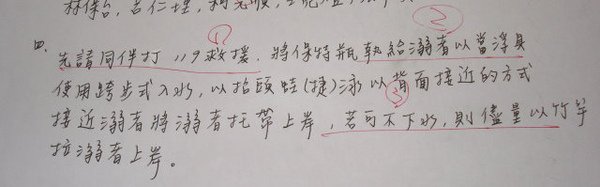 ②
①
四、先請同伴打119救援，將保特瓶執給溺者以當浮具
使用跨步式入水，以抬頭蛙(捷)泳以背面接近的方式
③
接近溺者將溺者托帶上岸，若可不下水，則儘量以竹竿
拉溺者上岸。